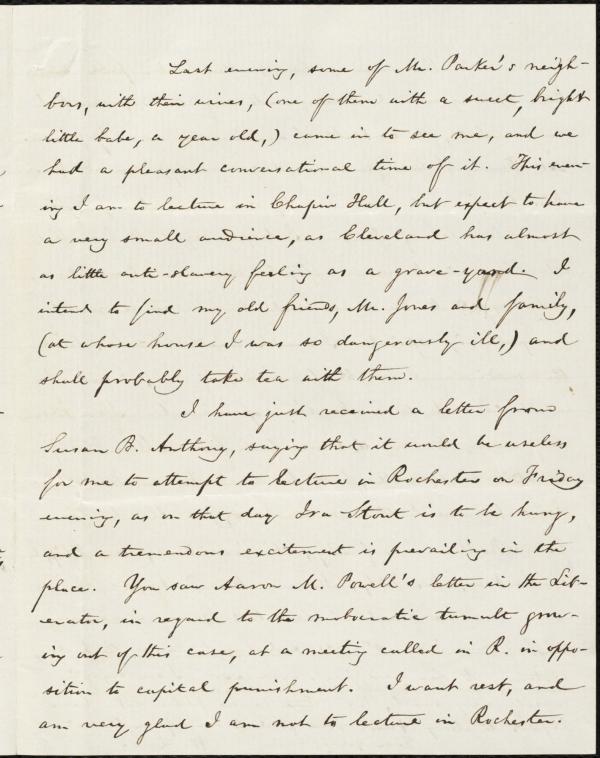 Last evening, some of Mr. Parker's neigh-
bors, with their wives, (one of them with a sweet, bright
little babe, a year old,) came in to see me, and we
had a pleasant conversational time of it. This even-
ing I am to lecture in Chapin Hall, but expect to have
a very small audience, as Cleveland has almost
as little anti-slavery feeling as a grave-yard. I
intend to find my old friends, Mr. Jones and family,
(at whose house I was so dangerously ill,) and
shall probably take tea with them.
I have just received a letter from
Susan B. Anthony, saying that it would be useless
for me to attempt to lecture in Rochester on Friday
evening, as on that day Ira Stout is to be hung,
and a tremendous excitement is prevailing in the
place. You saw Aaron M. Powell's letter in the Lib-
erator, in regard to the mobocratic tumult grow-
ing out of this case, at a meeting called in R. in oppo-
sition to capital punishment. I want rest, and
am very glad I am not to lecture in Rochester.